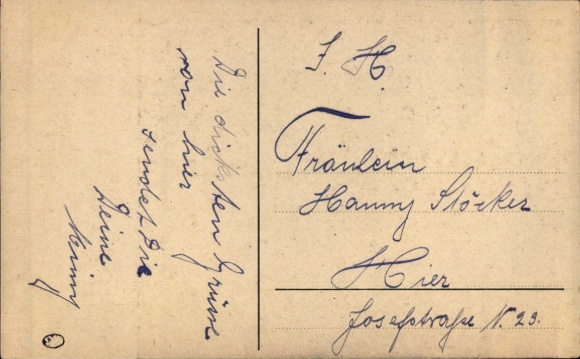 Die dicksten Grüsse
von hier
sendet Die
Deine
J. H.
Fräulein
Hanny Stöcker
Hier
Josefstraße N. 23.